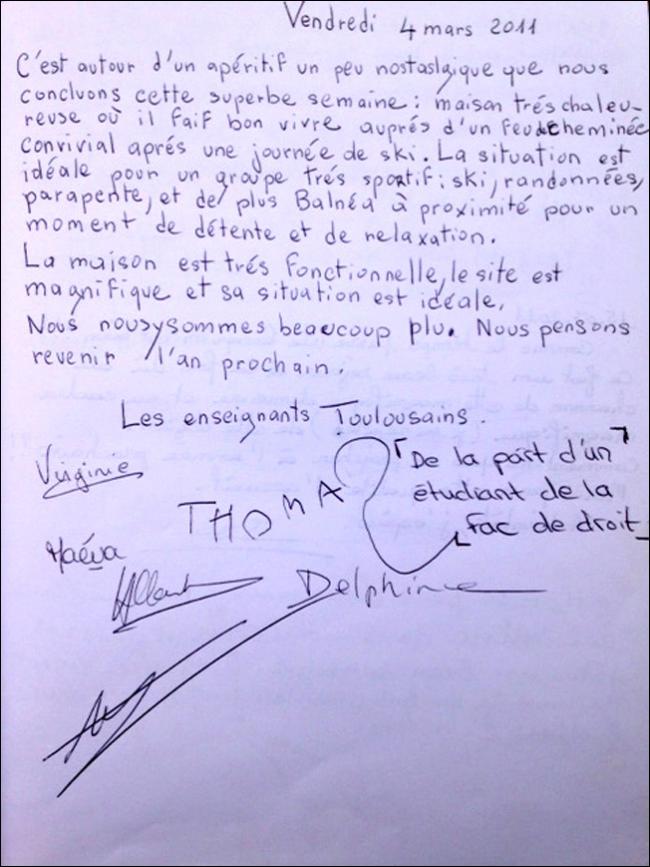 Vendredi 4 mars 2011
C'est autour d'un apéritif un peu nostaslgique que nous
concluons cette superbe semaine : maison trés chaleu-
reuse où il faif bon vivre auprés d'un feu de cheminée
convivial aprés une journée de ski. La situation est
idéale pour un groupe trés sportif : ski, randonnées,
parapente, et de plus Balnéa à proximité pour un
moment de détente et de relaxation.
La maison est trés fonctionnelle, le site est
magnifique et sa situation est idéale,
Nous nous y sommes beaucoup plu. Nous pensons
revenir l'an prochain.
Les enseignants Toulousains.
Virginie
THOMAS
De la part d'un
étudiant de la
fac de droit
Maéva
Delphine